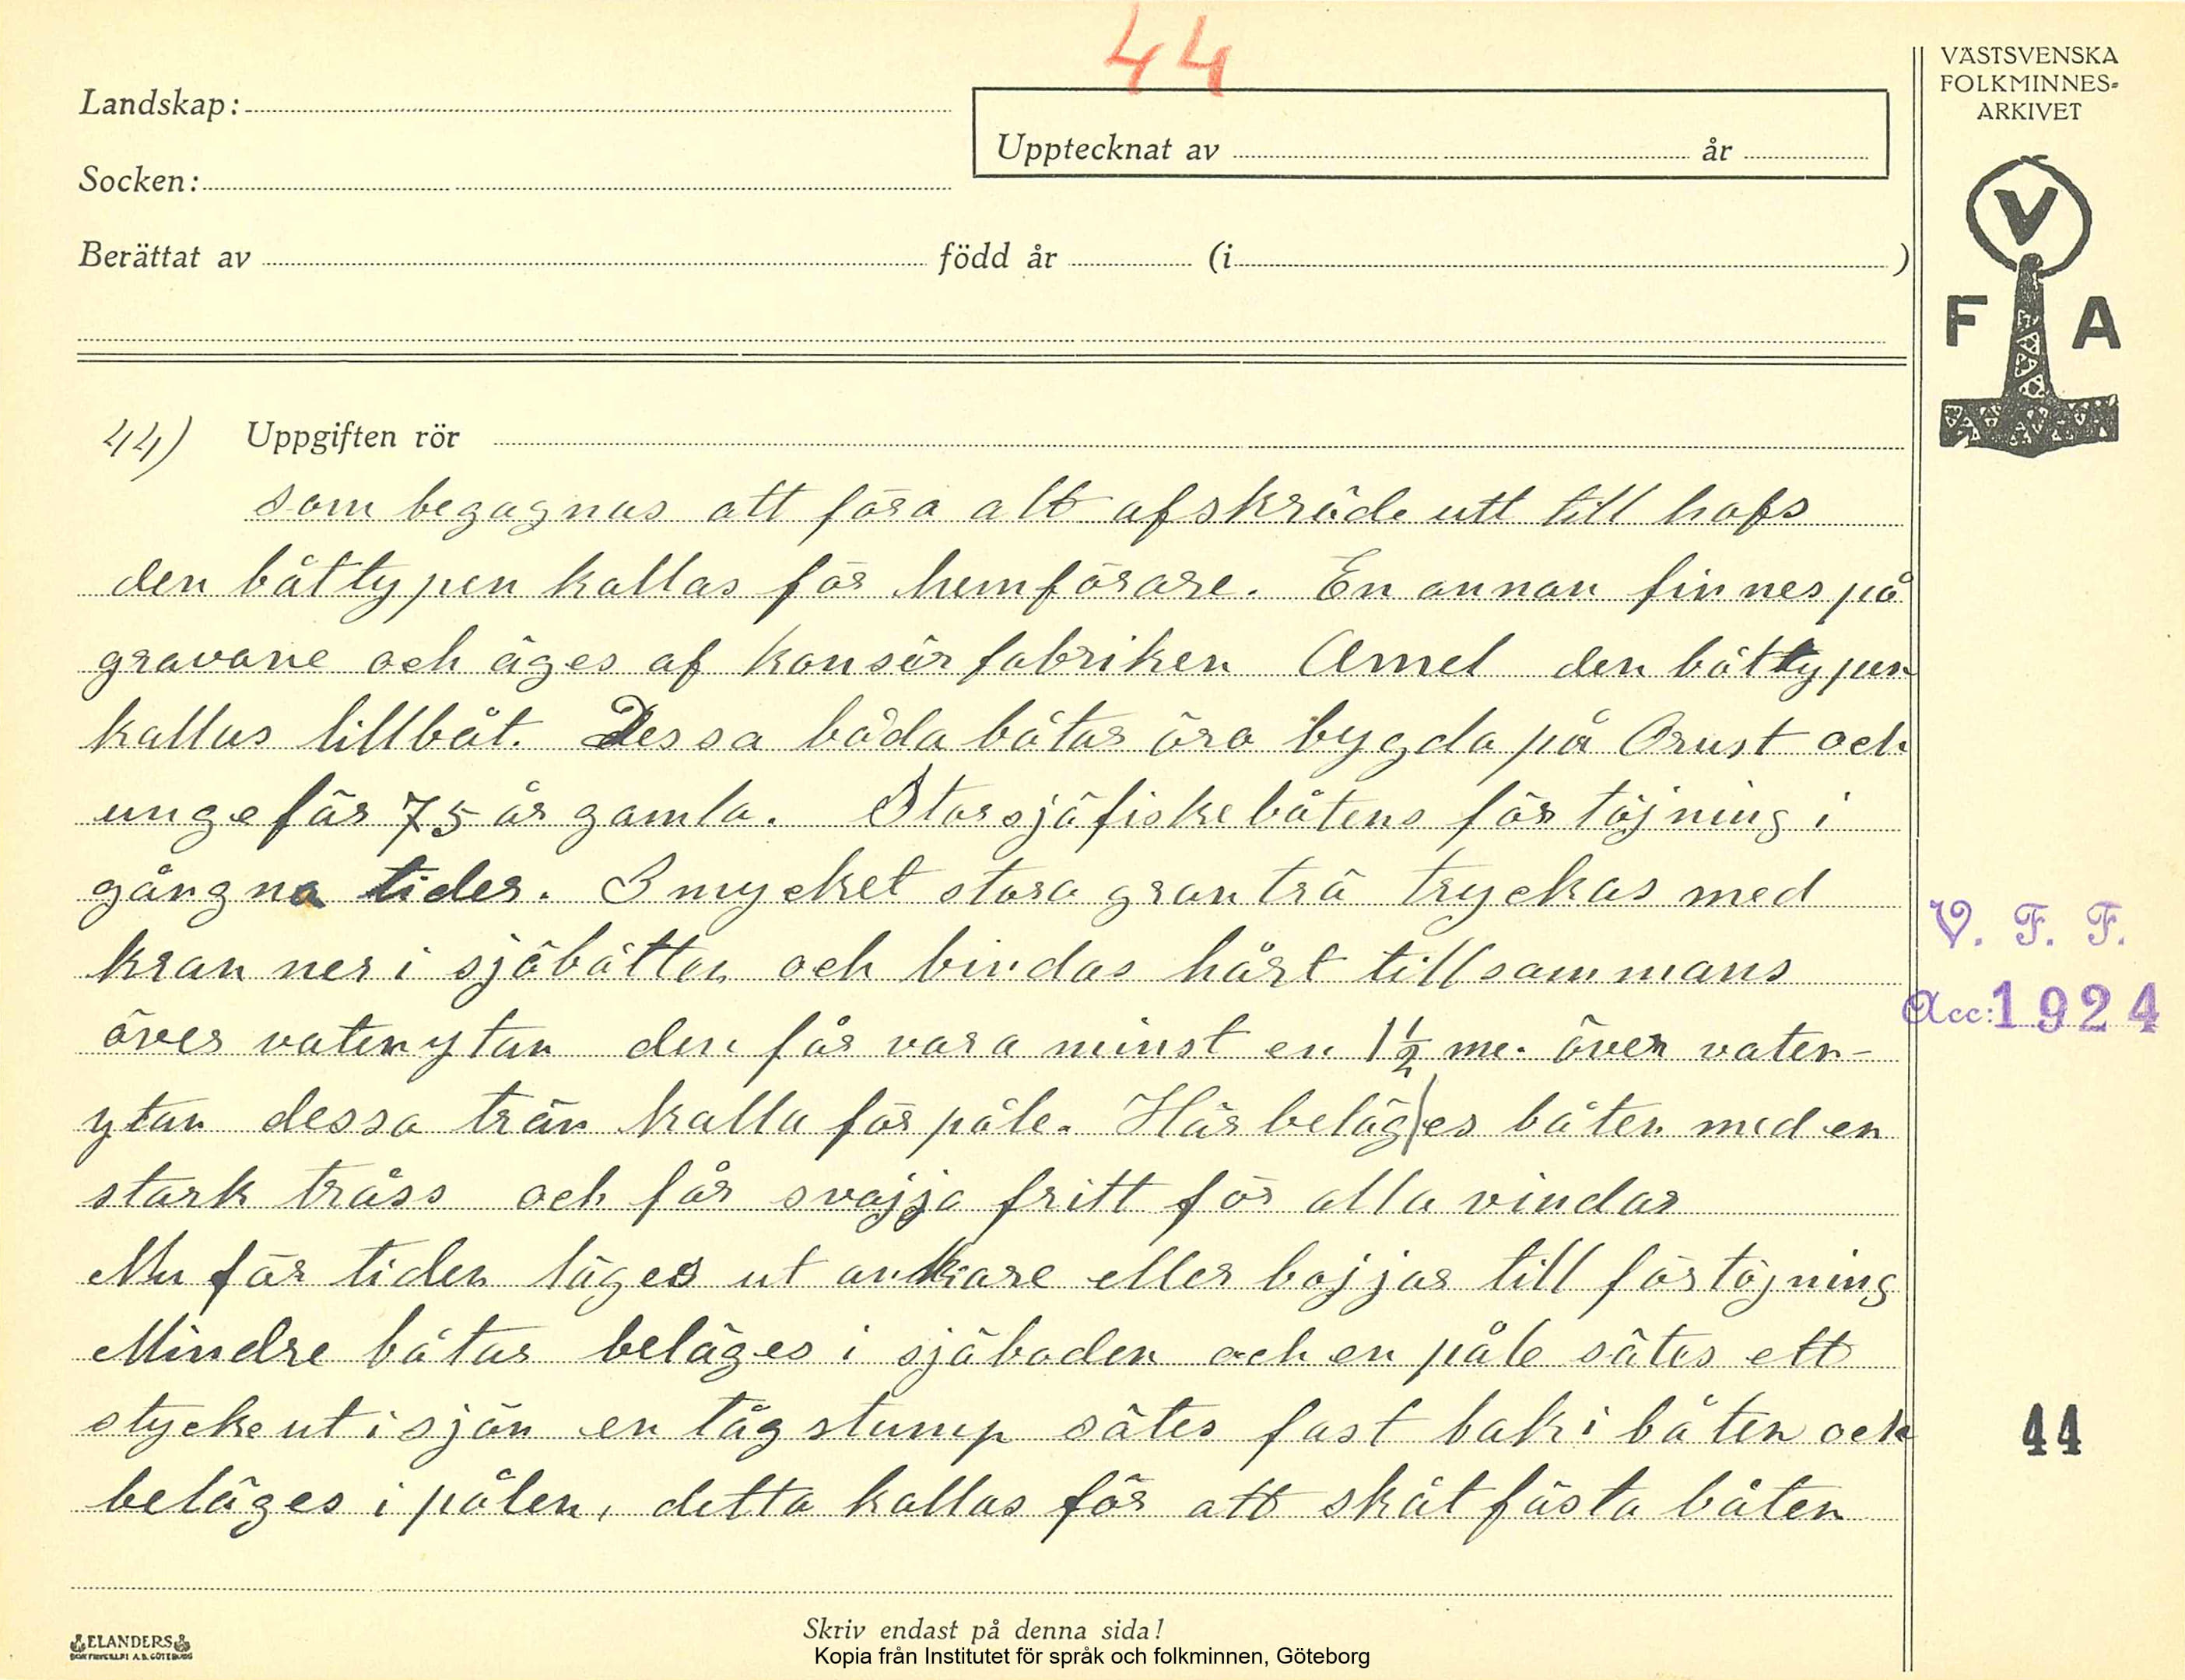 44
VÄSTSVENSKA
FOLKMINNES-
ARKIVET
Landskap:
Upptecknat av år
Socken:
Berättat av född år (i )
V
F A
44) Uppgiften rör
som begagnas att föra alt afskräde utt till hafs
den båttypen kallas för hemförare. En annan finnes på
gravarne och äges af konsärfabriken Amel den båttypen
kallas lillbåt. Dessa båda båtar äro bygda på Orust och
ungefär 75 år gamla. Storsjöfiskebåtens förtöjning i
gångna tider. 3 mycket stora granträ tryckas med
kran ner i sjöbåtten och bindas hårt tillsammans
över vatenytan den får vara minst en 1½ me. över vaten-
ytan dessa trän kalla för påle. Här beläges båten med en
stark tråss och får svajja fritt för alla vindar
Nu för tiden läges ut ankare eller bojjar till förtöjning
Mindre båtar beläges i sjöboden och en påle sätes ett
stycke ut i sjön en tågstump sätes fast bak i båten och
beläges i pålen, detta kallas för att skåtfästa båten
V. F. F.
Acc: 1924
44
Skriv endast på denna sida!
ELANDERS
BOKTRYCKERI A.B. GÖTEBORG
Kopia från Institutet för språk och folkminnen, Göteborg